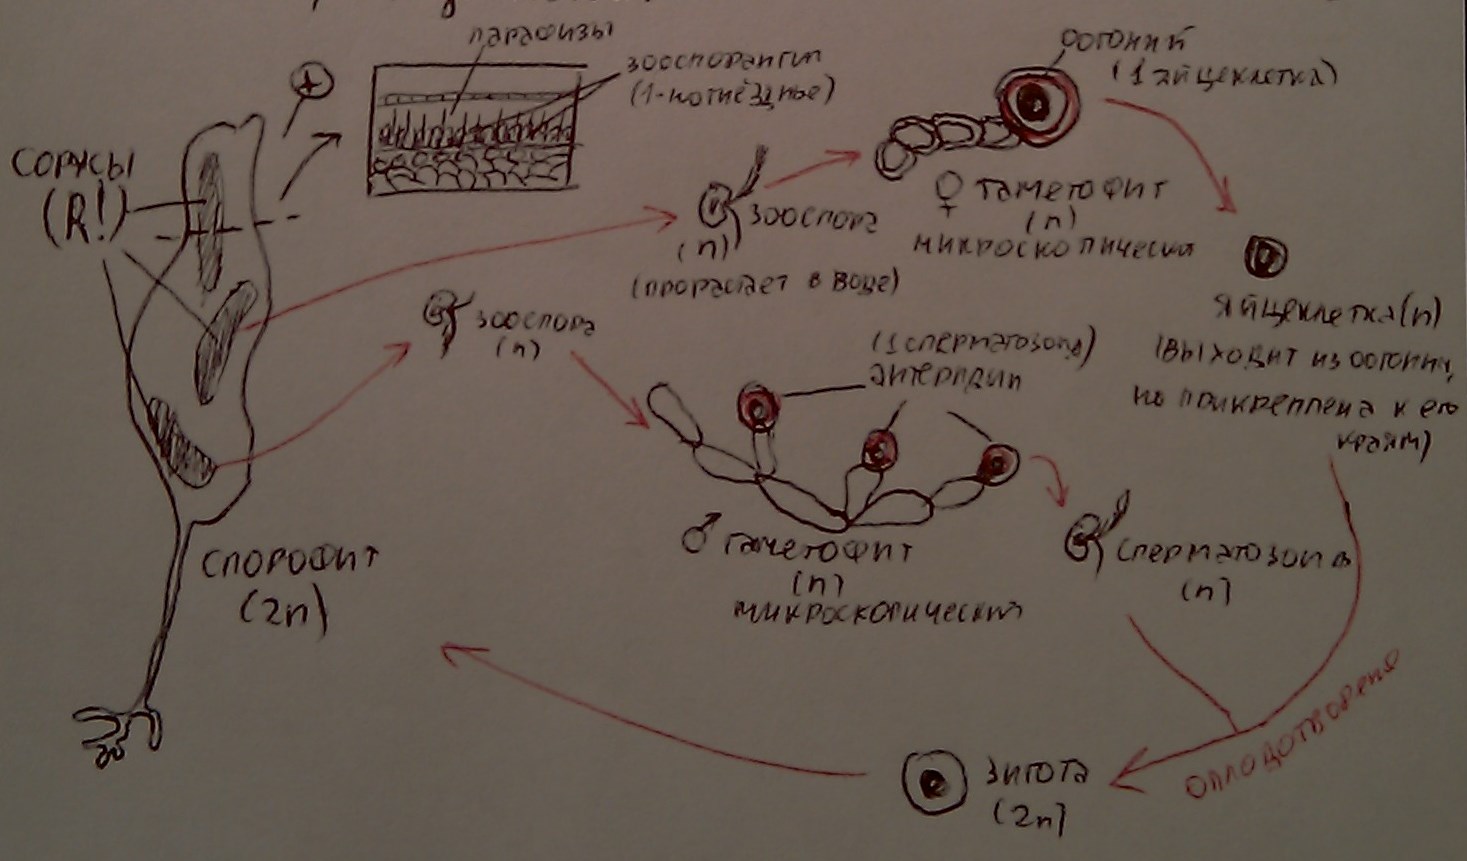 парафизы
зооспорангии
(1-ногнёздные)
оогоний
(1 яйцеклетка)
+
сорусы
(R!)
зооспора
(n)
(прорастает в воде)
♀ гаметофит
(n)
микроскопический
яйцеклетка (n)
(выходит из оогония,
но прикреплена к его
краям)
зооспора
(n)
(1 сперматозоид)
антеридии
♂ гаметофит
(n)
микроскопический
сперматозоид
(n)
спорофит
(2n)
оплодотворение
зигота
(2n)